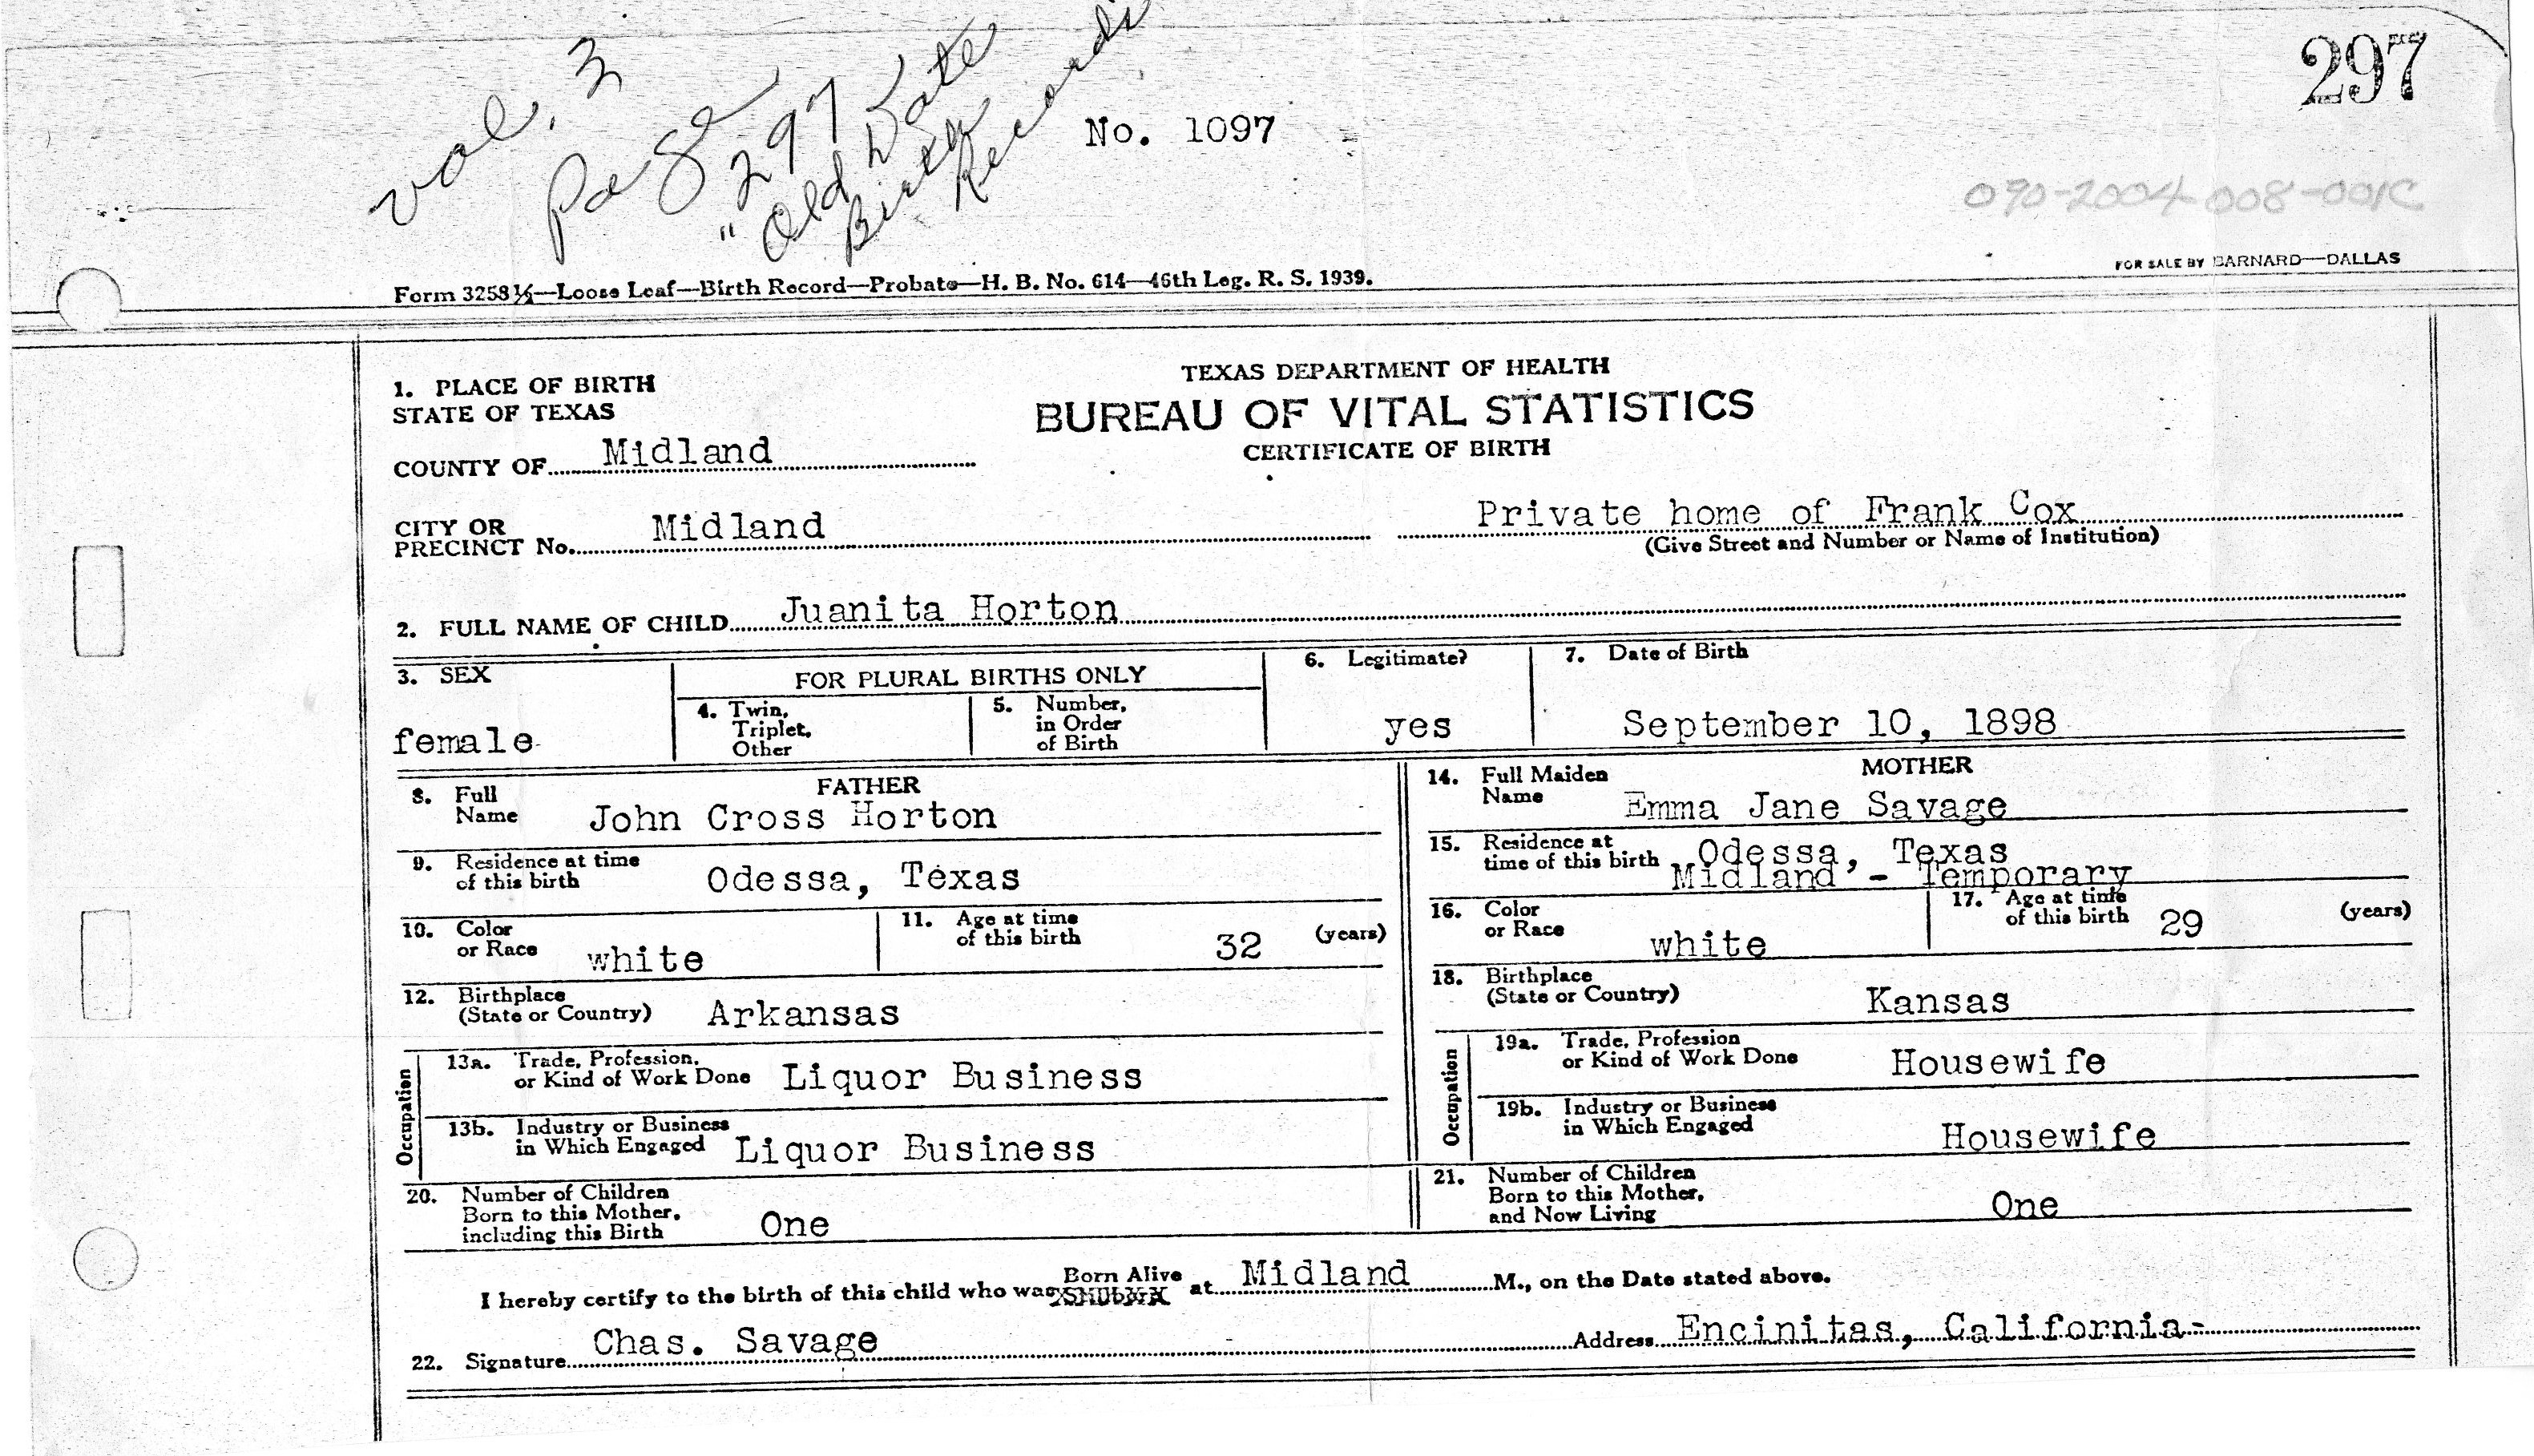 297
vol. 3
Page
297
"Old Date
Birth
Records
No. 1097
090-2004-008-001C
FOR SALE BY BARNARD—DALLAS
Form 3258½—Loose Leaf—Birth Record—Probate—H. B. No. 614—46th Leg. R. S. 1939.
1. PLACE OF BIRTH
STATE OF TEXAS
TEXAS DEPARTMENT OF HEALTH
BUREAU OF VITAL STATISTICS
CERTIFICATE OF BIRTH
COUNTY OF Midland
CITY OR
PRECINCT No. Midland
Private home of Frank Cox
(Give Street and Number or Name of Institution)
2. FULL NAME OF CHILD Juanita Horton
3. SEX
female
FOR PLURAL BIRTHS ONLY
4. Twin,
Triplet,
Other
5. Number,
in Order
of Birth
6. Legitimate?
yes
7. Date of Birth
September 10, 1898
FATHER
8. Full
Name John Cross Horton
9. Residence at time
of this birth Odessa, Texas
10. Color
or Race white
11. Age at time
of this birth 32 (years)
12. Birthplace
(State or Country) Arkansas
Occupation
13a. Trade, Profession,
or Kind of Work Done Liquor Business
13b. Industry or Business
in Which Engaged Liquor Business
20. Number of Children
Born to this Mother,
including this Birth One
MOTHER
14. Full Maiden
Name Emma Jane Savage
15. Residence at
time of this birth Odessa, Texas
Midland - Temporary
16. Color
or Race white
17. Age at time
of this birth 29 (years)
18. Birthplace
(State or Country) Kansas
Occupation
19a. Trade, Profession
or Kind of Work Done Housewife
19b. Industry or Business
in Which Engaged Housewife
21. Number of Children
Born to this Mother,
and Now Living One
I hereby certify to the birth of this child who was Born Alive at Midland M., on the Date stated above.
22. Signature Chas. Savage Address Encinitas, California-